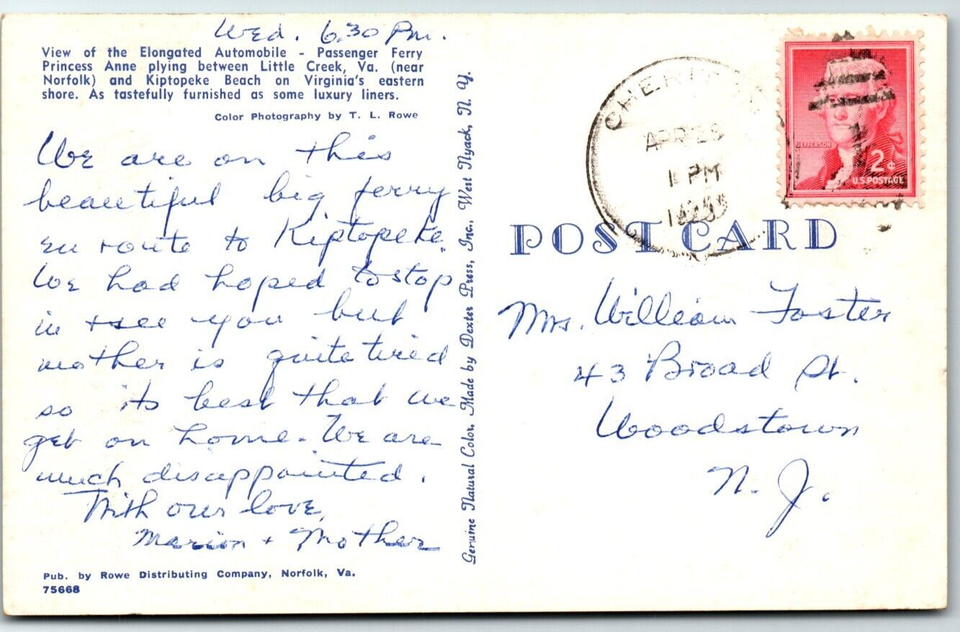 Wed. 6.30 Pm.
View of the Elongated Automobile - Passenger Ferry
Princess Anne plying between Little Creek, Va. (near
Norfolk) and Kiptopeke Beach on Virginia's eastern
shore. As tastefully furnished as some luxury liners.
Color Photography by T. L. Rowe
We are on this
beautiful big ferry
en route to Kiptopeke.
We had hoped to stop
in + see you but
mother is quite tired
so its best that we
get on home. We are
much disappointed.
With our love,
Marion + Mother
Pub. by Rowe Distributing Company, Norfolk, Va.
75668
Genuine Natural Color. Made by Dexter Press, Inc., West Nyack, N. Y.
APR 28
1 PM
JEFFERSON
2¢
U.S. POSTAGE
POST CARD
Mrs. William Foster
43 Broad St.
Woodstown
N. J.